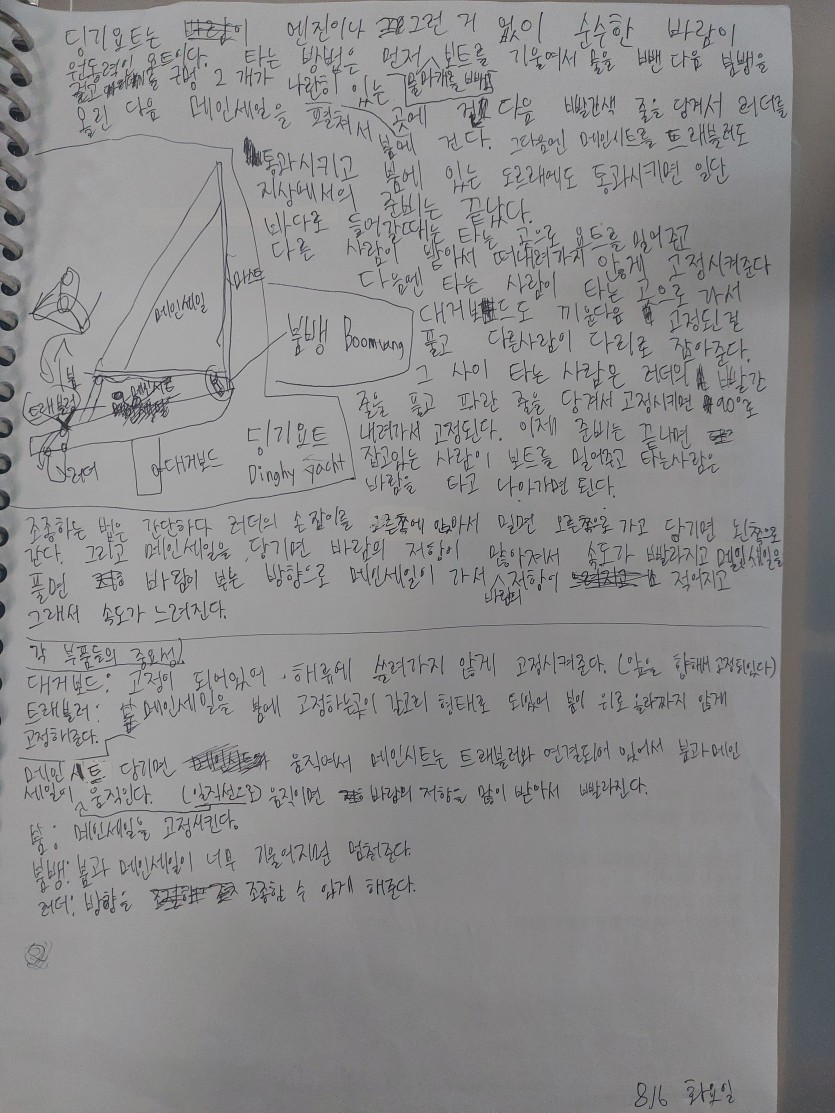 딩기요트는 엔진이나 그런 거 없이 순수한 바람이
원동력인 요트이다. 타는 방법은 먼저 보트를 기울여서 물을 뺀 다음 붐뱅을
걸고 구멍 2개가 나란히 있는
물마개를 빼고
곳에 걸고 다음 빨간색 줄을 당겨서 러더를
올린 다음 메인세일을 펼쳐서 붐에 건다. 그다음엔 메인시트를 트래블러도
통과시키고 붐에 있는 도르래에도 통과시키면 일단
지상에서의 준비는 끝났다.
바다로 들어갈때는 타는 곳으로 요트를 밀어주고
다른 사람이 받아서 떠내려가지 않게 고정시켜준다
다음엔 타는 사람이 타는 곳으로 가서
대거보드도 끼운다음 고정된걸
풀고 다른사람이 다리로 잡아준다.
그 사이 타는 사람은 러더의 빨간
줄을 풀고 파란 줄을 당겨서 고정시키면 90°로
내려가서 고정된다. 이제 준비는 끝나면
잡고있는 사람이 보트를 밀어주고 타는사람은
바람을 타고 나아가면 된다.
마스트
메인세일
붐뱅 Boomvang
붐
메인시트
트래블러
러더
대거보드
딩기요트
Dinghy yacht
조종하는 법은 간단하다 러더의 손잡이를 오른쪽에 앉아서 밀면 오른쪽으로 가고 당기면 왼쪽으로
간다. 그리고 메인세일을 당기면 바람의 저항이 많아져서 속도가 빨라지고 메인세일을
풀면 바람이 부는 방향으로 메인세일이 가서 바람의 저항이 적어지고
그래서 속도가 느려진다.
각 부품들의 중요성
대거보드: 고정이 되어있어 해류에 쓸려가지 않게 고정시켜준다. (앞을 향해서 고정되있다)
트래블러: 메인세일을 붐에 고정하는곳이 갈고리 형태로 되있어 붐이 위로 올라가지 않게
고정해준다.
메인시트 당기면 움직여서 메인시트는 트래블러와 연결되어 있어서 붐과 메인
세일이 움직인다. (일직선으로) 움직이면 바람의 저항을 많이 받아서 빨라진다.
붐: 메인세일을 고정시킨다.
붐뱅: 붐과 메인세일이 너무 기울어지면 멈춰준다.
러더: 방향을 조종할 수 있게 해준다.
8/6 화요일